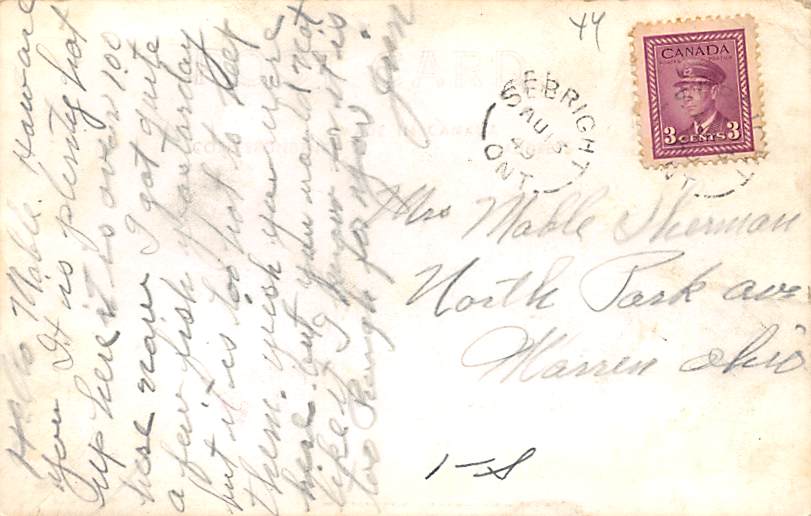 Hello Mable. How are
you It is plenty hot
up here it is over 100
here now I got quite
a few fish yesterday
but it is too hot to keep
them. wish you were
here but you would not
like it I know for it is
too tough for you. 
44
CARD
CANADA
3 CENTS 3
SEBRIGHT
AU
49
ONT.
Mrs Mable Sherman
North Park ave
Warren Ohio
1-S